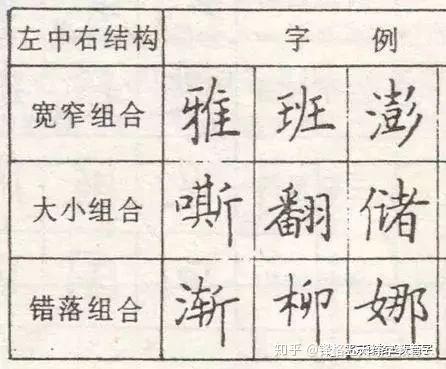 左中右结构 字 例
宽窄组合 雅 班 澎
大小组合 嘶 翻 储
错落组合 渐 柳 娜
知乎